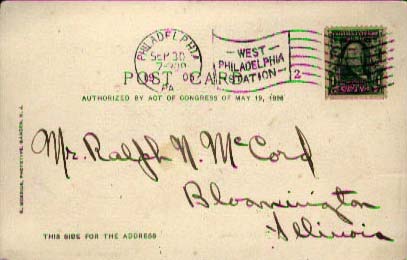 PHILADELPHIA
SEP 30
PA.
WEST
PHILADELPHIA
STATION
2
POST CARD
AUTHORIZED BY ACT OF CONGRESS OF MAY 19, 1898
Mr. Ralph N. McCord
Bloomington
Illinois
THIS SIDE FOR THE ADDRESS